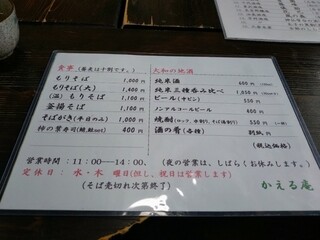 食事 (蕎麦は十割です。)
もりそば 1,000 円
もりそば(大) 1,400 円
(温) もりそば 1,100 円
釜揚そば 1,100 円
そばがき(平日のみ) 1,000 円
柿の葉寿司 400 円
大和の地酒
純米酒 600 円
純米三種呑み比べ 1,050 円
ビール(キリン) 550 円
ノンアルコールビール 400 円
焼酎(ロック、水割り、そば湯割り) 550 円
酒の肴(各種) 別紙
(税込価格)
営業時間:11:00―14:00. (夜の営業は、しばらくお休みします。)
定休日: 水・木 曜日(但し、祝日は営業します)
(そば売切れ次第終了)
かえる庵